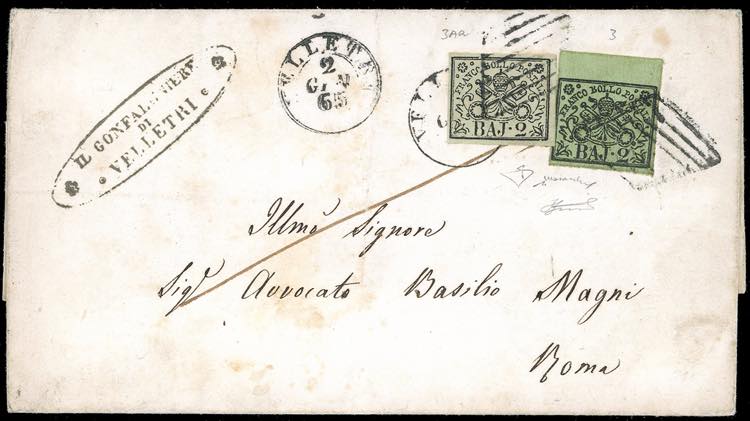 3Aa
3
IL GONFALONIERE
DI
VELLETRI
VELLETRI
2
GEN
65
VELLE
FRANCO BOLLO POSTALE
BAJ. 2
FRANCO BOLLO PO
BAJ. 2
Illmo Signore
Sigr Avvocato Basilio Magni
Roma